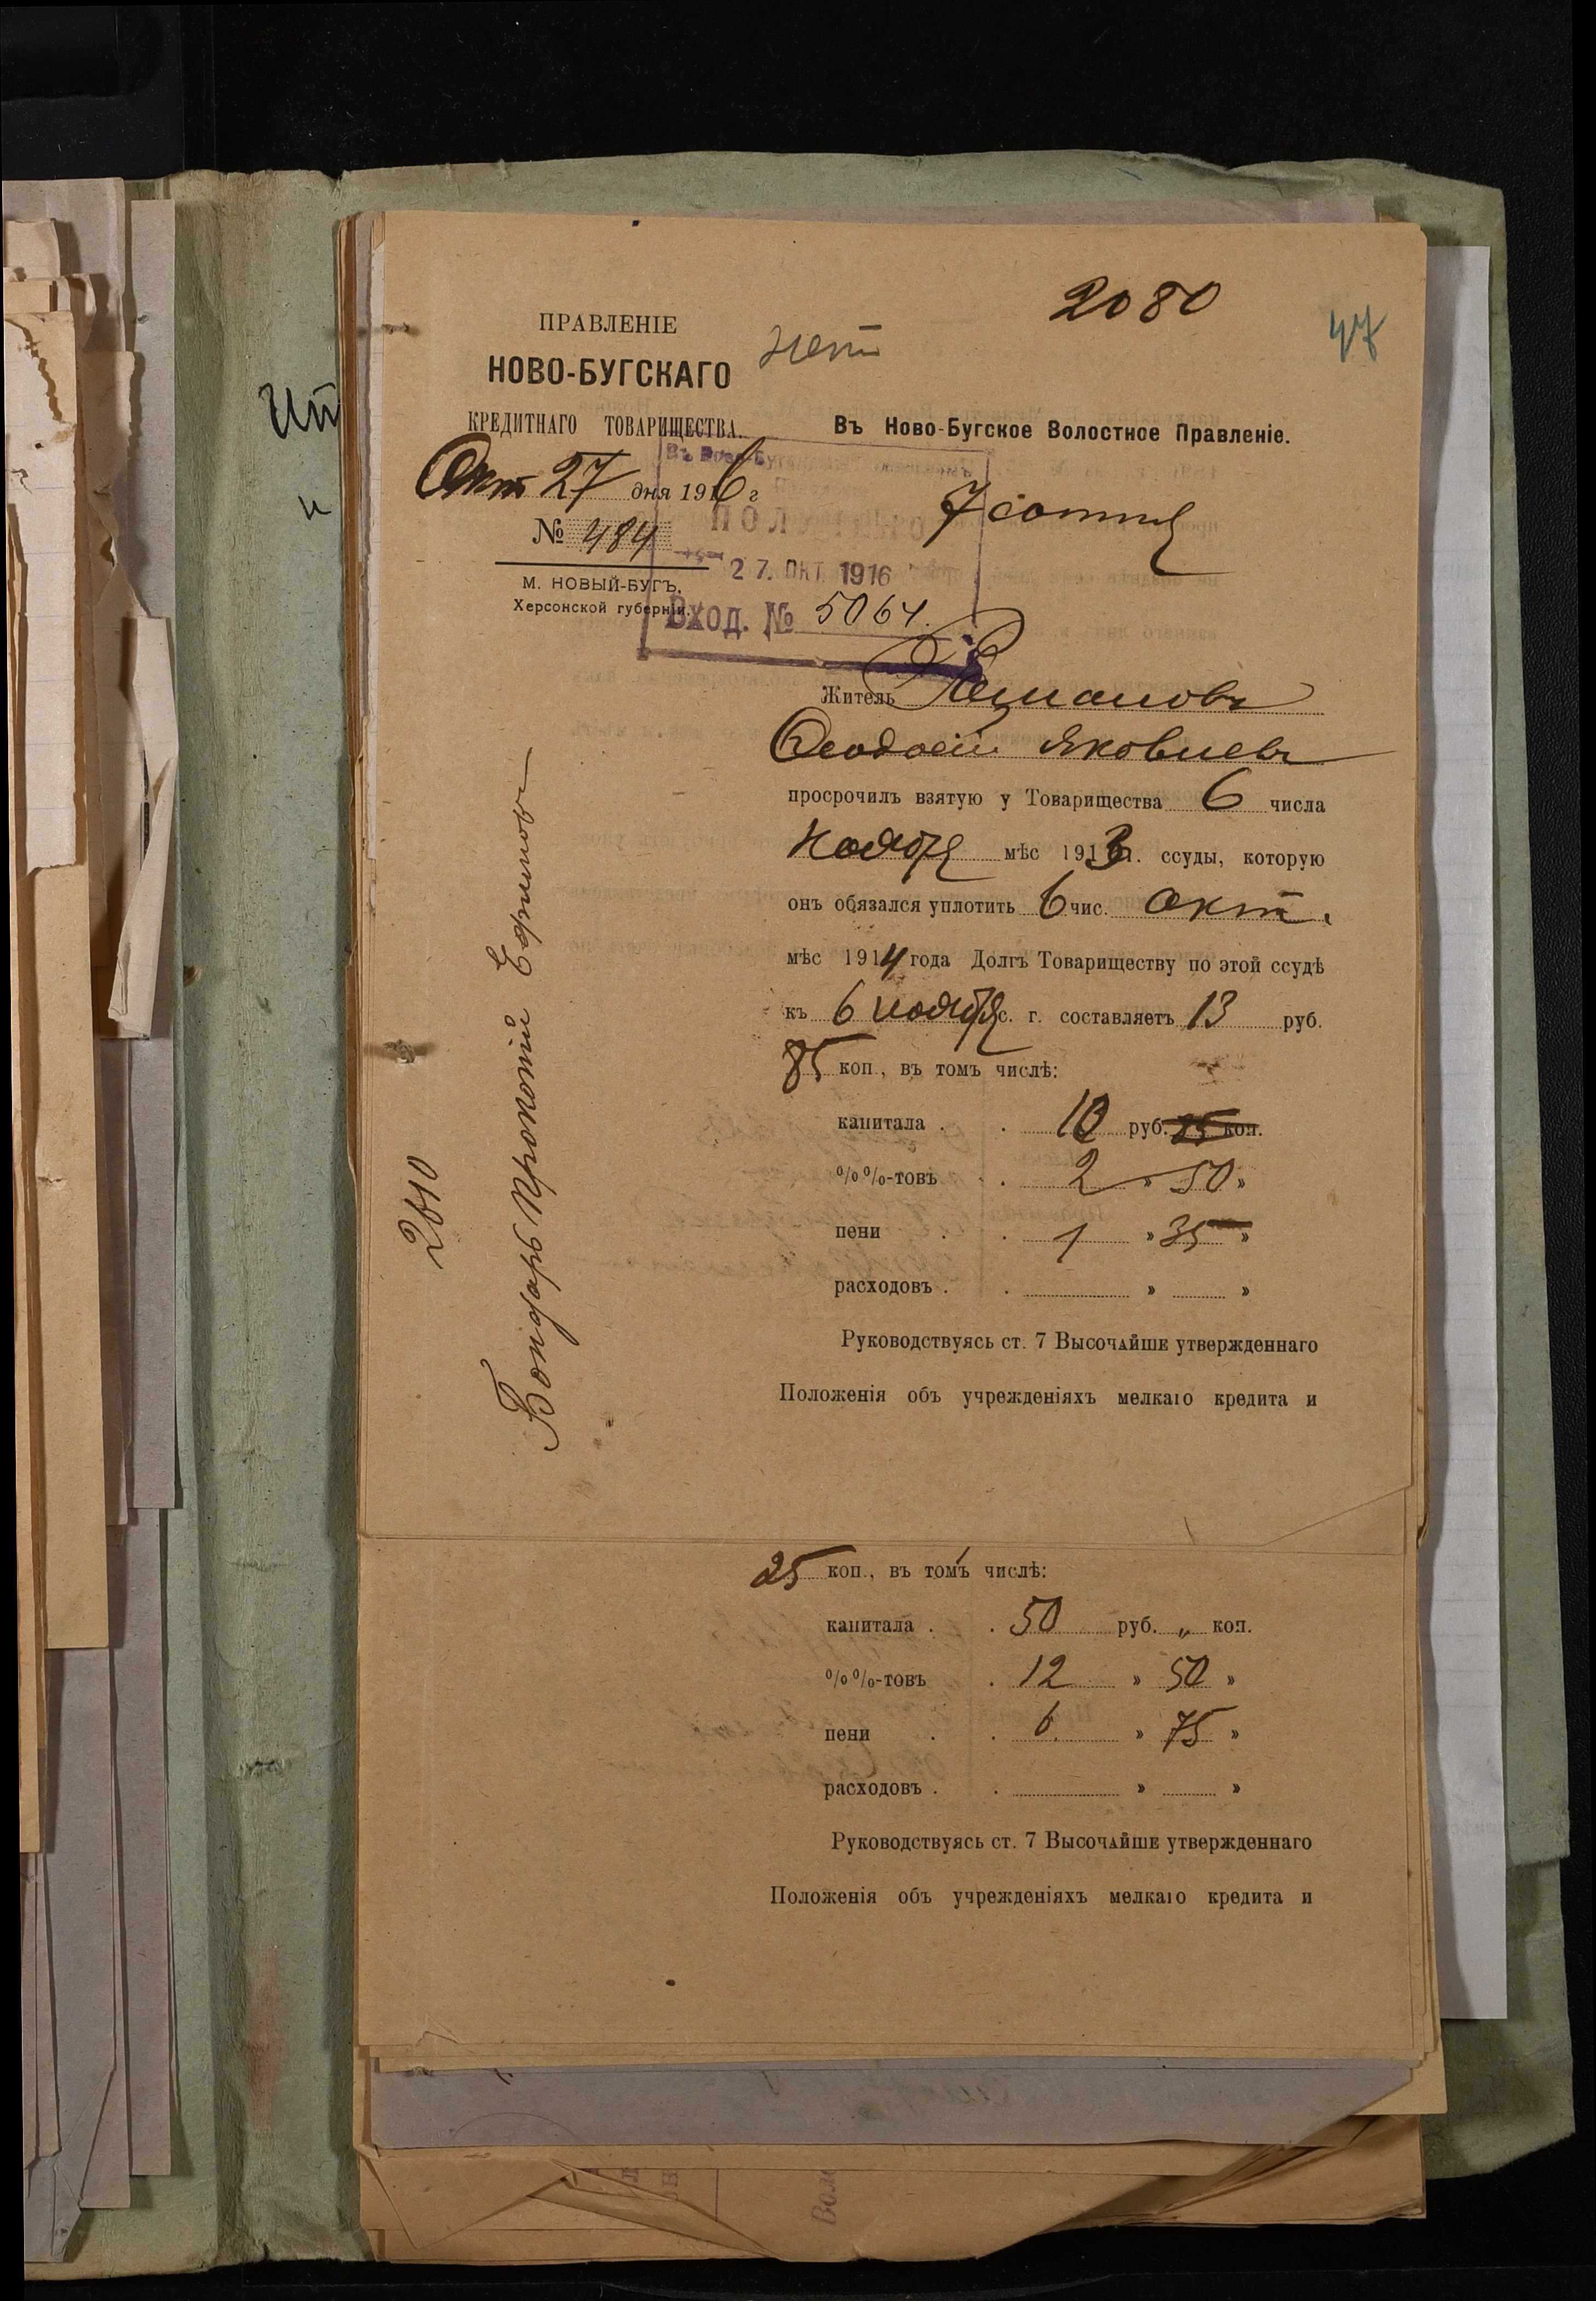 2080
47
ПРАВЛЕНІЕ
НОВО-БУГСКАГО
КРЕДИТНАГО ТОВАРИЩЕСТВА.
Въ Ново-Бугское Волостное Правленіе.
Окт 27 дня 1916 г
7 сотни
№ 484
27. ОКТ. 1916
М. НОВЫЙ-БУГЪ.
Херсонской губерніи.
Вход. № 5064.
Житель
Феодосій Яковлевъ
просрочилъ взятую у Товарищества 6 числа
Ноября мѣс 1913 г. ссуды, которую
онъ обязался уплотить 6 чис. окт.
мѣс 1914 года Долгъ Товариществу по этой ссудѣ
къ 6 ноября с. г. составляетъ 13 руб.
85 коп., въ томъ числѣ:
капитала . . 10 руб. 25 коп.
%%-товъ . . 2 » 50 »
пени . . 1 » 35 »
расходовъ . . » »
Руководствуясь ст. 7 Высочайше утвержденнаго
Положенія объ учрежденіяхъ мелкаго кредита и
Бондарь Прокопій Ефимовъ
25 коп., въ томъ числѣ:
капитала . . 50 руб. „ коп.
%%-товъ . 12 » 50 »
пени . . 6. » 75 »
расходовъ . . » »
Руководствуясь ст. 7 Высочайше утвержденнаго
Положенія объ учрежденіяхъ мелкаго кредита и